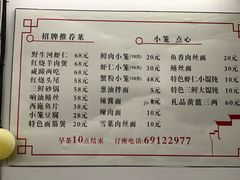 招牌推荐菜
野生河虾仁 68元
红烧羊肉煲 68元
咸蹄两吃 58元
红烧老头汤 58元
三鲜砂锅 58元
响油鳝丝 58元
西施鱼片 38元
小笼豆腐 28元
特色面筋煲 28元
小笼 点心
鲜肉小笼(10只) 20元
虾仁小笼(10只) 30元
蟹粉小笼(10只) 30元
葱油拌面 5元
辣酱面 元
辣肉面 元
雪菜肉丝面 元
鱼香肉丝面 20元
鳝丝面 30元
特色虾仁大馄饨 10元
特色三鲜大馄饨 10元
礼品黄篮三两 60元
早茶10点结束 订座电话:69122977